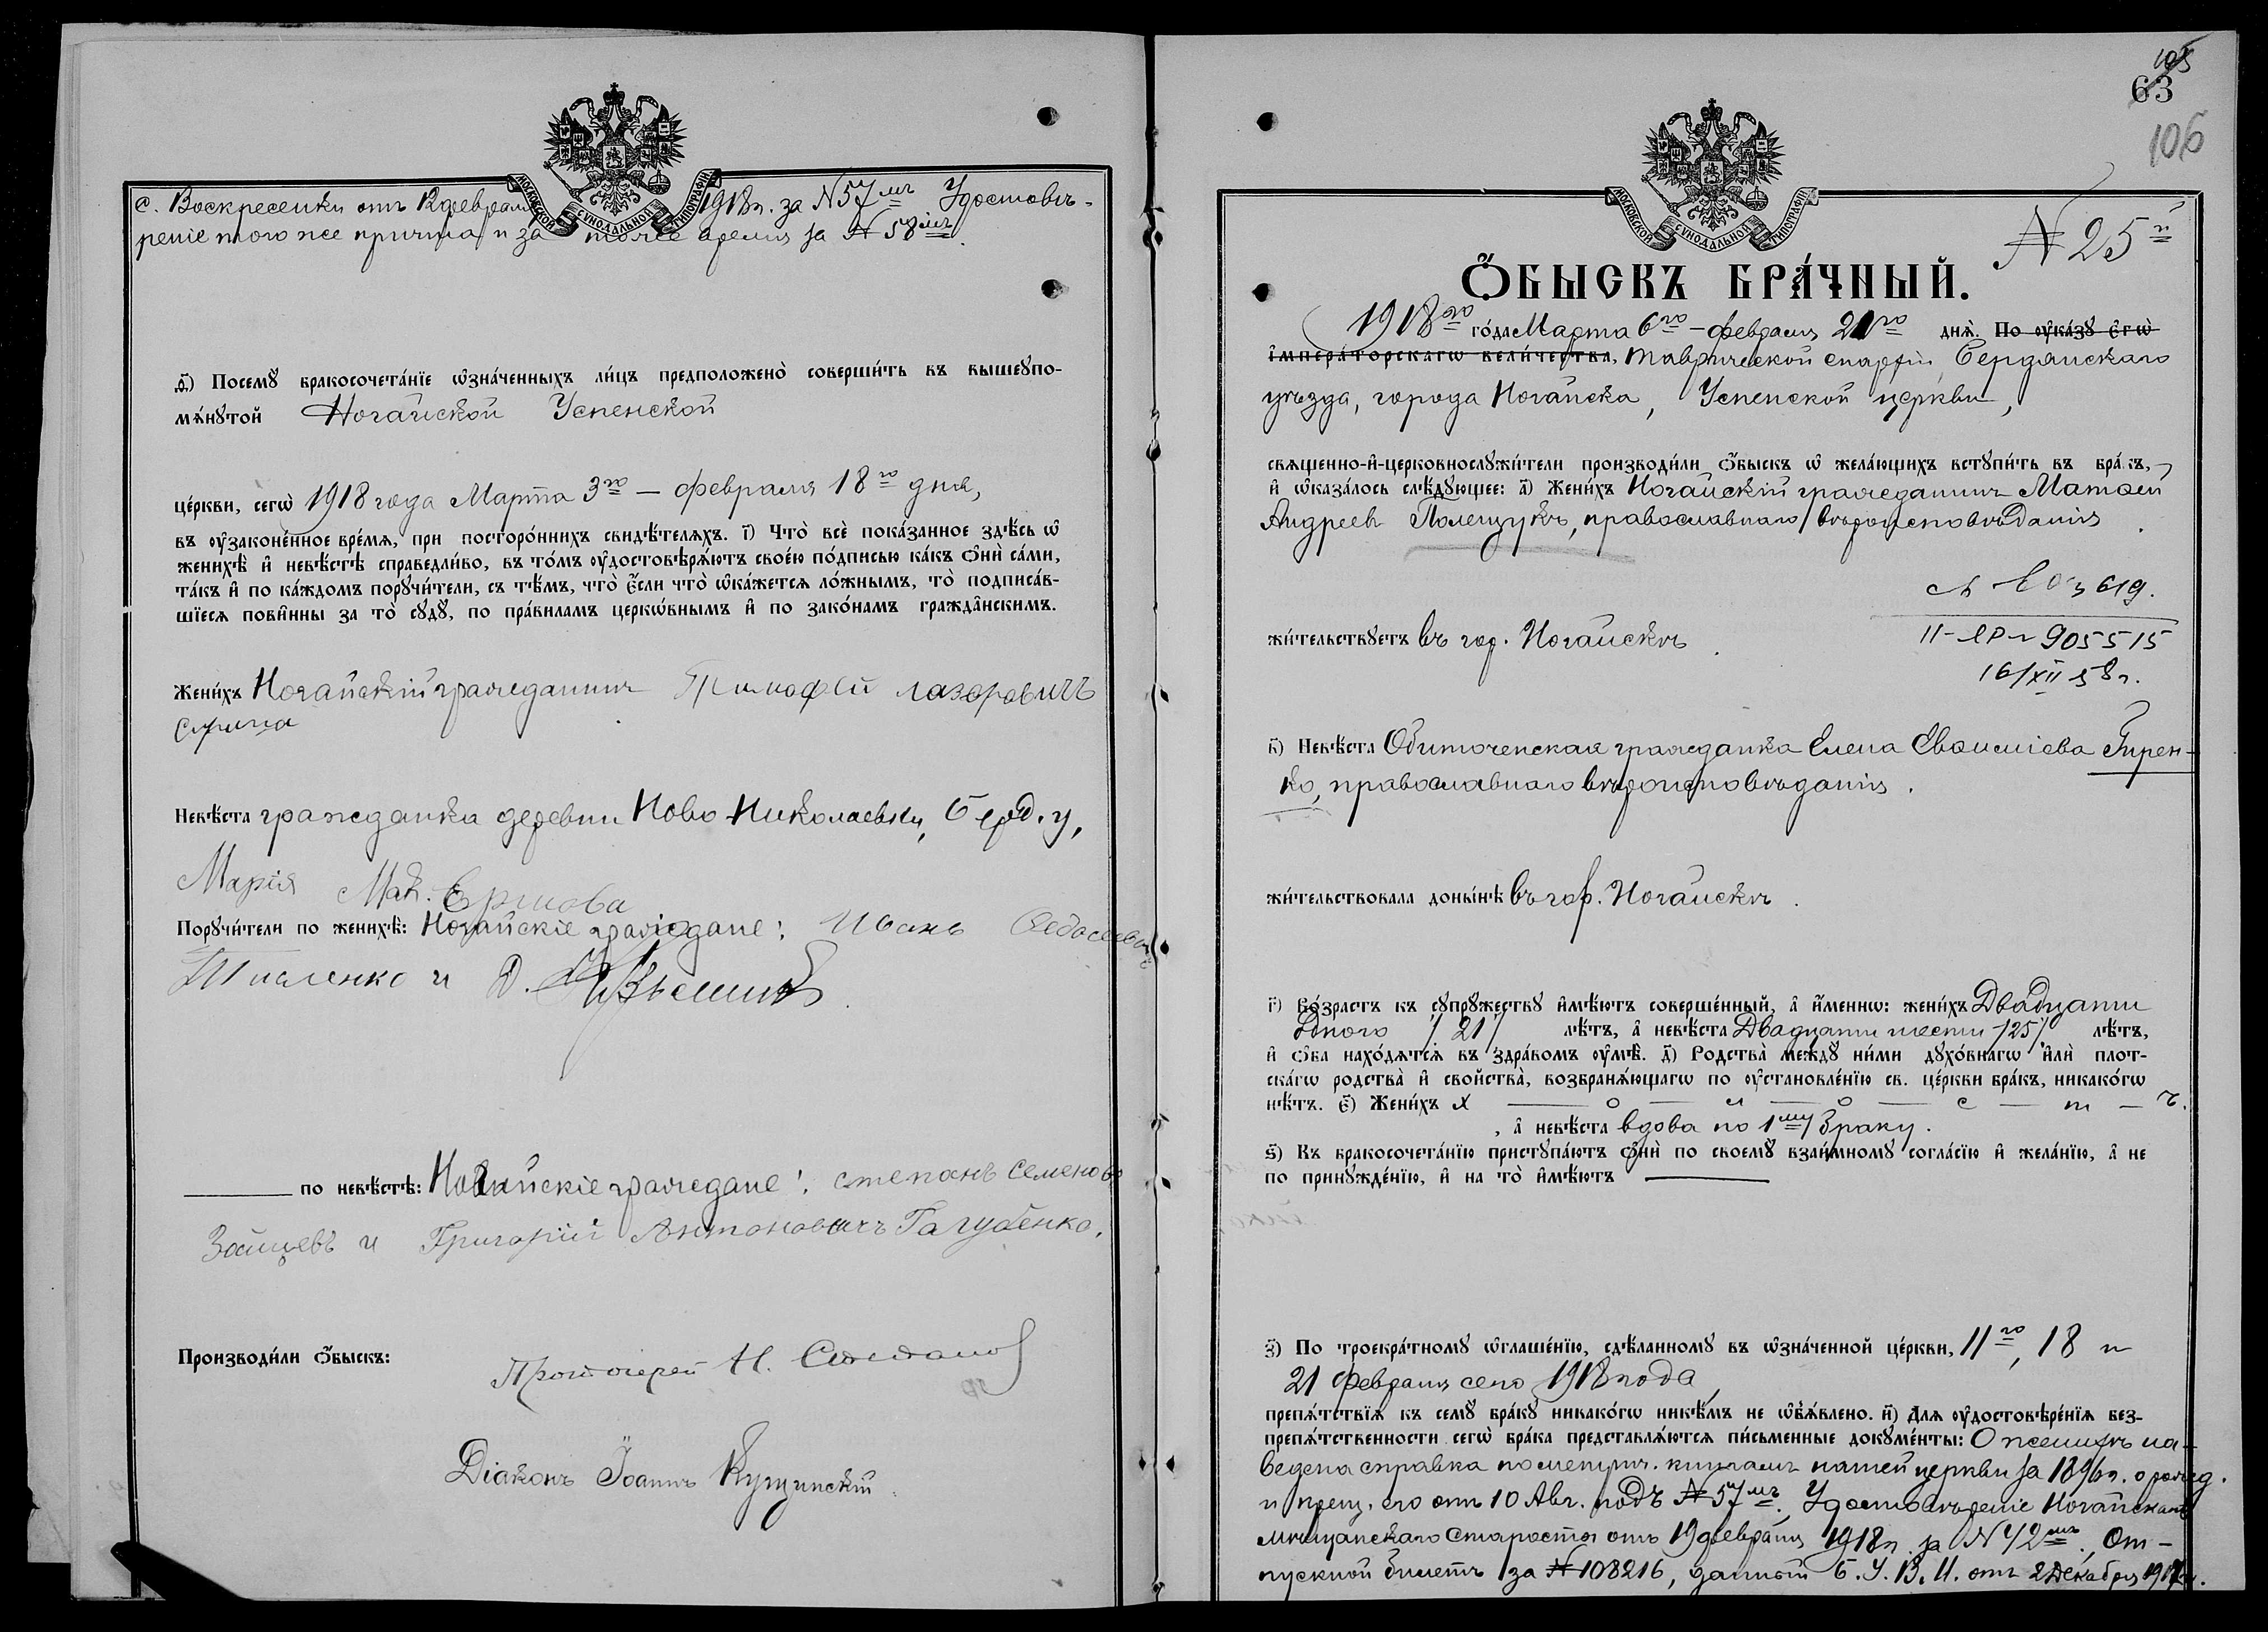 с. Воскресенки отъ 12 февраля 1918 г. за № 57мъ Удостовѣ-
реніе того же причта и за тоже время за № 58мъ.
МОСКОВСКОЙ СѴНОДАЛЬНОЙ ТИПОГРАФІИ
д҃) Посемꙋ бракосочета́нїе ѡзна́ченныхъ ли́цъ предположено̀ соверши́ть въ вышеꙋпо-
мѧ́нꙋтой Ногайской Успенской
це́ркви, сегѡ̀ 1918 года Марта 3го — февраля 18го дня,
въ ᲂу҆законе́нное вре́мѧ, при посторо́ннихъ свидѣ́телѧхъ. і҃) Что̀ всѐ пока́занное здѣ́сь ѡ҆
женихѣ̀ и҆ невѣ́стѣ справедли́во, въ то́мъ ᲂу҆достовѣрѧ́ютъ свое́ю по́дписью ка́къ ѻ҆нѝ са́ми,
та́къ и҆ по ка́ждомъ порꙋчи́тели, съ тѣ́мъ, что̀ є҆́сли что̀ ѡ҆ка́жетсѧ ло́жнымъ, то̀ подписа́в-
шїесѧ пови́нны за то̀ сꙋдꙋ̀, по пра́виламъ церко́внымъ и҆ по зако́намъ гражда́нскимъ.
Жени́хъ Ногайскій гражданинъ Тимофей Лазаровичъ
Невѣ́ста гражданка деревни Ново-Николаевки, Берд. у,
Марія Мак. Ершова
Порꙋчи́тели по женихѣ̀: Ногайскіе граждане: Иванъ Федосеевъ
и Д.
по невѣ́стѣ: Ногайскіе граждане: степанъ семеновъ
Зайцевъ и Григорій Антоновичъ Гагубенко.
Производи́ли ѻ҆́быскъ: Протоіерей Н.
Діаконъ Іоаннъ Кущинскій
105
63
106
МОСКОВСКОЙ СѴНОДАЛЬНОЙ ТИПОГРАФІИ
№ 25й
Ѻ҆́БЫСКЪ БРА́ЧНЫЙ.
1918го го́да Марта 6го — февраля 21го днѧ̀. По ᲂу҆ка́зꙋ є҆гѡ̀
и҆мпера́торскагѡ вели́чества, Таврической епархіи, Бердянскаго
уѣзда, города Ногайска, Успенской церкви,
свѧще́нно-и҆-церковнослꙋжи́тели производи́ли ѻ҆́быскъ ѡ҆ жела́ющихъ встꙋпи́ть въ бра́къ,
и҆ ѡ҆каза́лось слѣ́дꙋющее: а҃) Жени́хъ Ногайскій гражданинъ Матѳей
Андреевъ Полещукъ, православнаго вѣроисповѣданія.
619.
905515
16/XII 58 г.
жи́тельствꙋетъ въ гор. Ногайскѣ.
в҃) Невѣ́ста Обиточенская гражданка Елена Евсиміева Гирен-
ко, православнаго вѣроисповѣданія.
жи́тельствовала доны́нѣ въ гор. Ногайскѣ.
г҃) Во́зрастъ къ сꙋпрꙋ́жествꙋ и҆мѣ́ютъ соверше́нный, а҆ и҆́меннѡ: жени́хъ Двадцати
одного /21/ лѣ́тъ, а҆ невѣ́ста Двадцати шести /25/ лѣ́тъ,
и҆ ѻ҆́ба нахо́дѧтсѧ въ здра́вомъ ᲂу҆мѣ̀. д҃) Родства̀ междꙋ̀ ни́ми дꙋхо́внагѡ и҆лѝ плот-
ска́гѡ родства̀ и҆ свойства̀, возбранѧ́ющагѡ по ᲂу҆становле́нїю св. це́ркви бра́къ, никако́гѡ
нѣ́тъ. є҃) Жени́хъ х — о — л — о — с — т — ъ.
, а҆ невѣ́ста вдова по 1му браку.
ѕ҃) Къ бракосочета́нїю пристꙋпа́ютъ ѻ҆нѝ по своемꙋ̀ взаи́мномꙋ согла́сїю и҆ жела́нїю, а҆ не
по принꙋжде́нїю, и҆ на то̀ и҆мѣ́ютъ
з҃) По троекра́тномꙋ ѡ҆глаше́нїю, сдѣ́ланномꙋ въ ѡ҆зна́ченной це́ркви, 11го, 18 и
21 февраля сего 1918 года,
препѧ́тствїѧ къ семꙋ̀ бра́кꙋ никако́гѡ никѣ́мъ не ѡ҆б̾ѧ́влено. и҃) Длѧ ᲂу҆достовѣре́нїѧ без-
препѧ́тственности сегѡ̀ бра́ка представлѧ́ютсѧ пи́сьменные докꙋме́нты: О женихѣ на-
ведена справка по метрич. книгамъ нашей церкви за 1896 г. о рожд.
и крещ. его отъ 10 Авг. подъ № 57мъ. Удостовѣреніе Ногайскаго
мѣщанскаго Старосты отъ 19 февраля 1918 г. за № 42мъ, От-
пускной билетъ за № 108216, данный Б. У. В. Н. отъ 2 Декабря 1917 г.